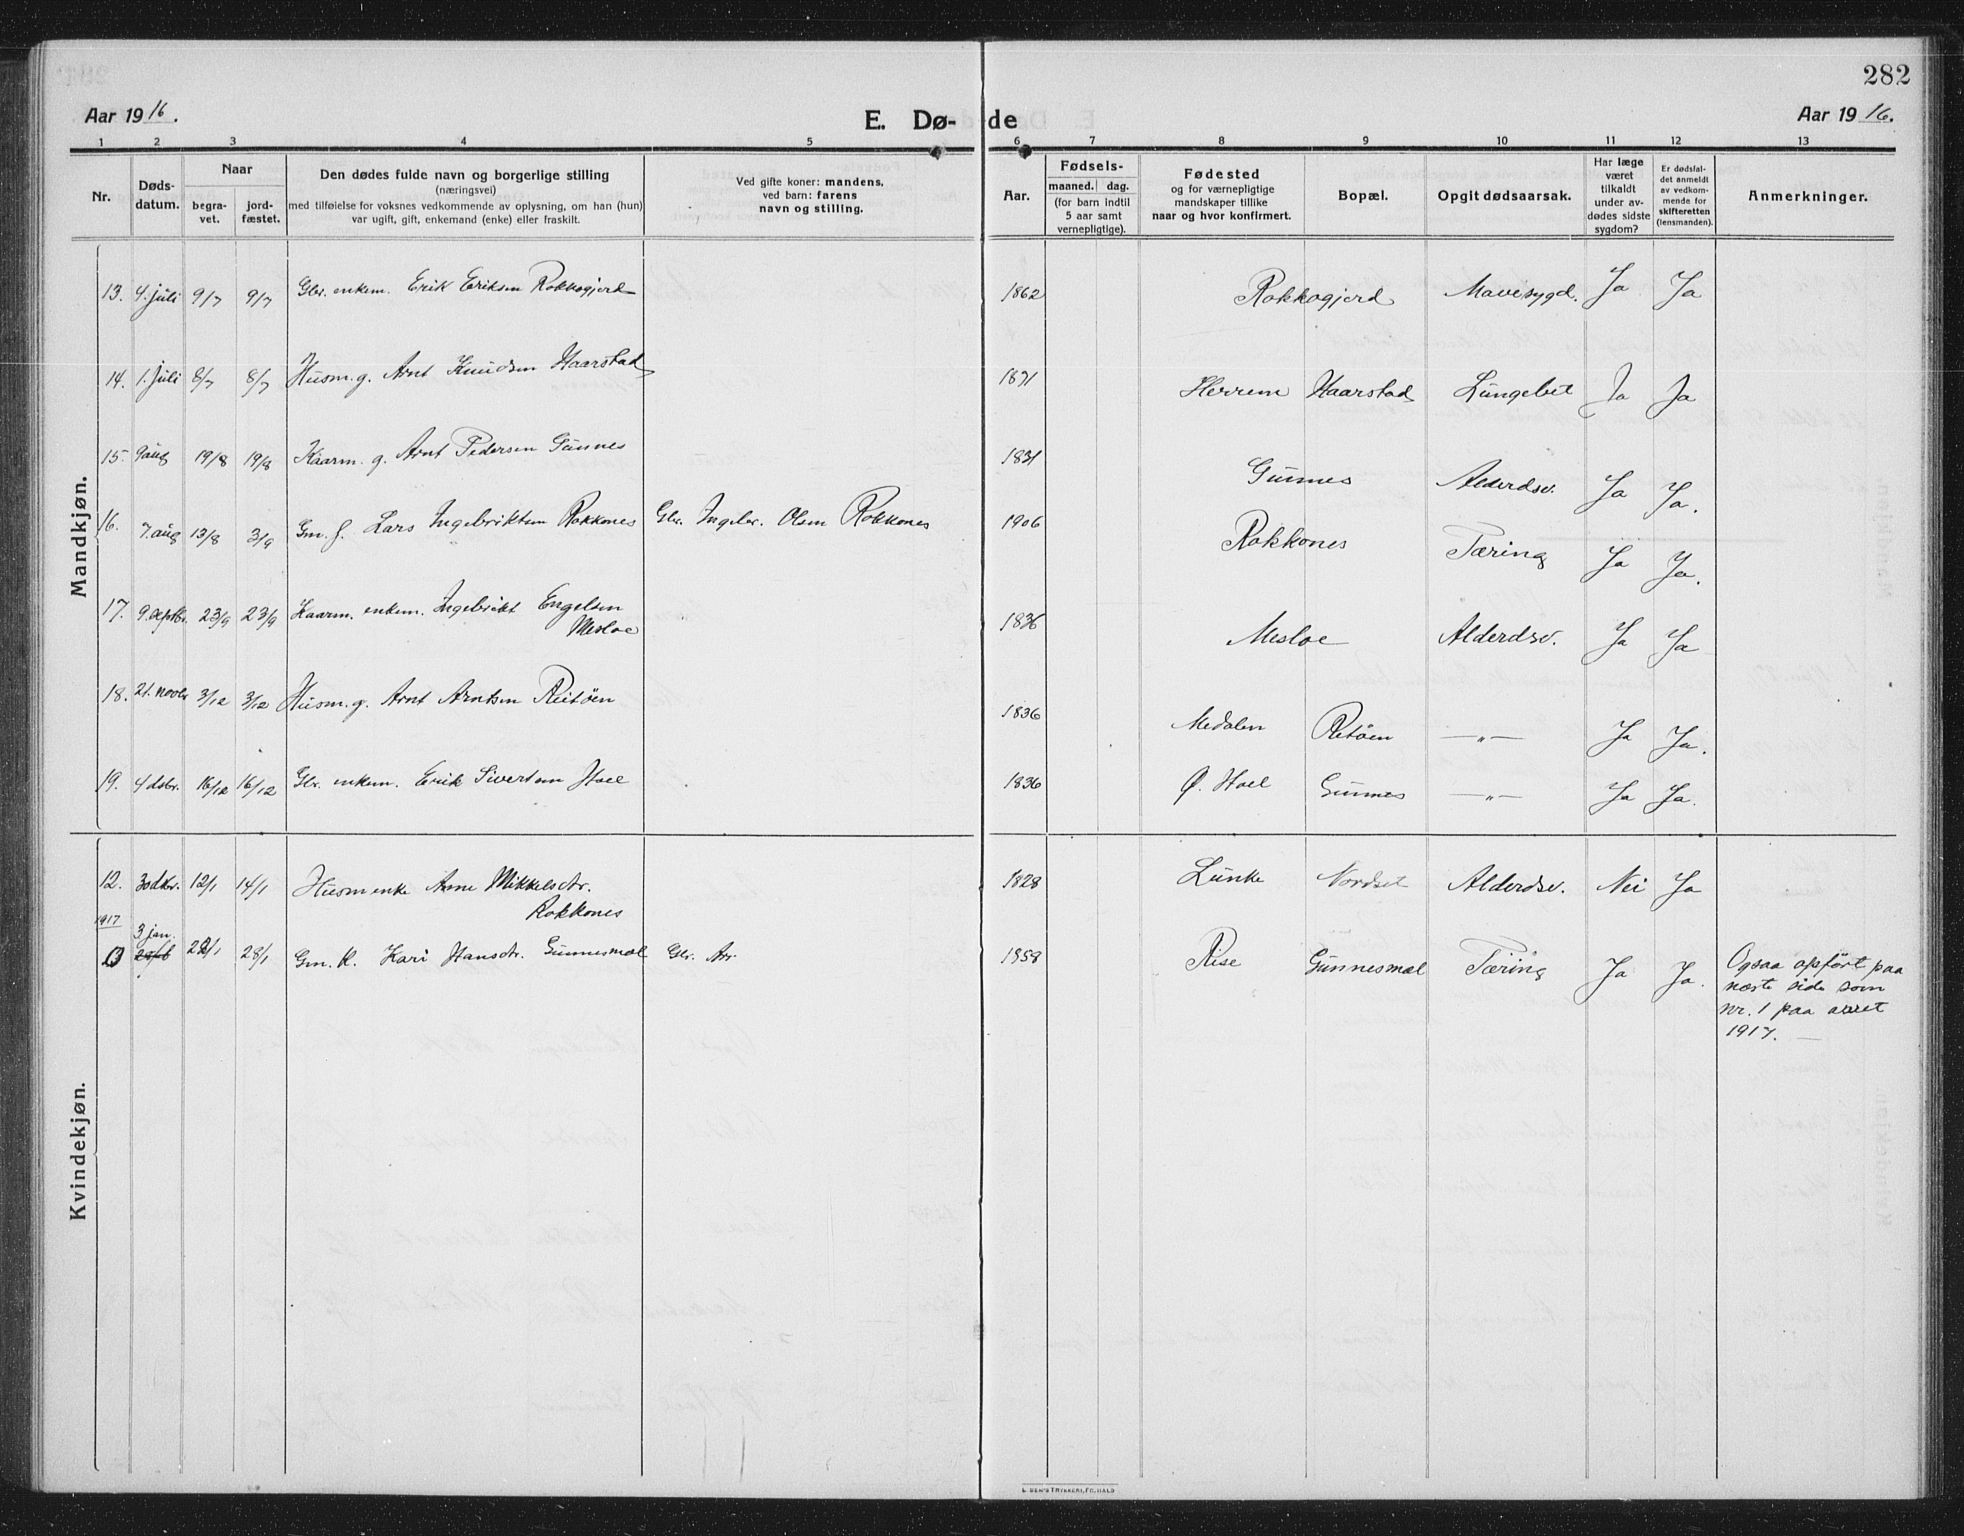 282
Aar 1916.
E. Dø-
de
Aar 1916.
1 2 3 4 5 6 7 8 9 10 11 12 13
Nr.
Døds-
datum.
Naar
begra-
vet.
jord-
fæstet.
Den dødes fulde navn og borgerlige stilling
(næringsvei)
med tilføielse for voksnes vedkommende av oplysning, om han (hun)
var ugift, gift, enkemand (enke) eller fraskilt.
Ved gifte koner: mandens,
ved barn: farens
navn og stilling.
Aar.
Fødsels-
maaned. dag.
(for barn indtil
5 aar samt
vernepligtige).
Fødested
og for værnepligtige
mandskaper tillike
naar og hvor konfirmert.
Bopæl.
Opgit dødsaarsak.
Har læge
været
tilkaldt
under av-
dødes sidste
sygdom?
Er dødsfal-
det anmeldt
av vedkom-
mende for
skifteretten
(lensmanden).
Anmerkninger.
Mandkjøn.
13. 4. juli 9/7 9/7 Gbr. enkem. Erik Eriksen Rokkogjerd 1862 Rokkogjerd Mavesygd. Ja Ja
14. 1. juli 8/7 8/7 Husm. g. Arnt Knudsen Haarstad 1871 Herrem Haarstad Lungebet Ja Ja
15. 9 aug 19/8 19/8 Kaarm. g. Arnt Pedersen Gunnes 1831 Gunnes Alderdsv. Ja Ja.
16. 7. aug 13/8 3/9 Gm. f. Lars Ingebriktsen Rokkones Gbr. Ingebr. Olsen Rokkones 1906 Rokkones Tæring Ja Ja.
17. 9. septbr. 23/9 23/9 Kaarm. enkem. Ingebrikt Engelsen
Mesloe 1836 Mesloe Alderdsv. Ja Ja
18. 21. novbr 3/12 3/12 Husm. g. Arnt Arntsen Reitøen 1836 Medalen Reitøen —„— Ja Ja.
19. 4 dsbr. 16/12 16/12 Gbr. enkem. Erik Sivertsen Hoel 1836 Ø. Hoel Gunnes —„— Ja Ja.
Kvindekjøn.
12. 30 dbr. 12/1 14/1 Husm enke Arne Mikkelsdtr.
Rokkones 1828 Lunke Nordset Alderdsv. Nei Ja
1917
3 jan.
13 28/1 28/1 Gm. k. Kari Hansdtr. Gunnesmæl Gbr. Arr 1858 Rise Gunnesmæl Tæring Ja Ja.
Ogsaa opført paa
næste side som
nr. 1 paa aaret
1917. —